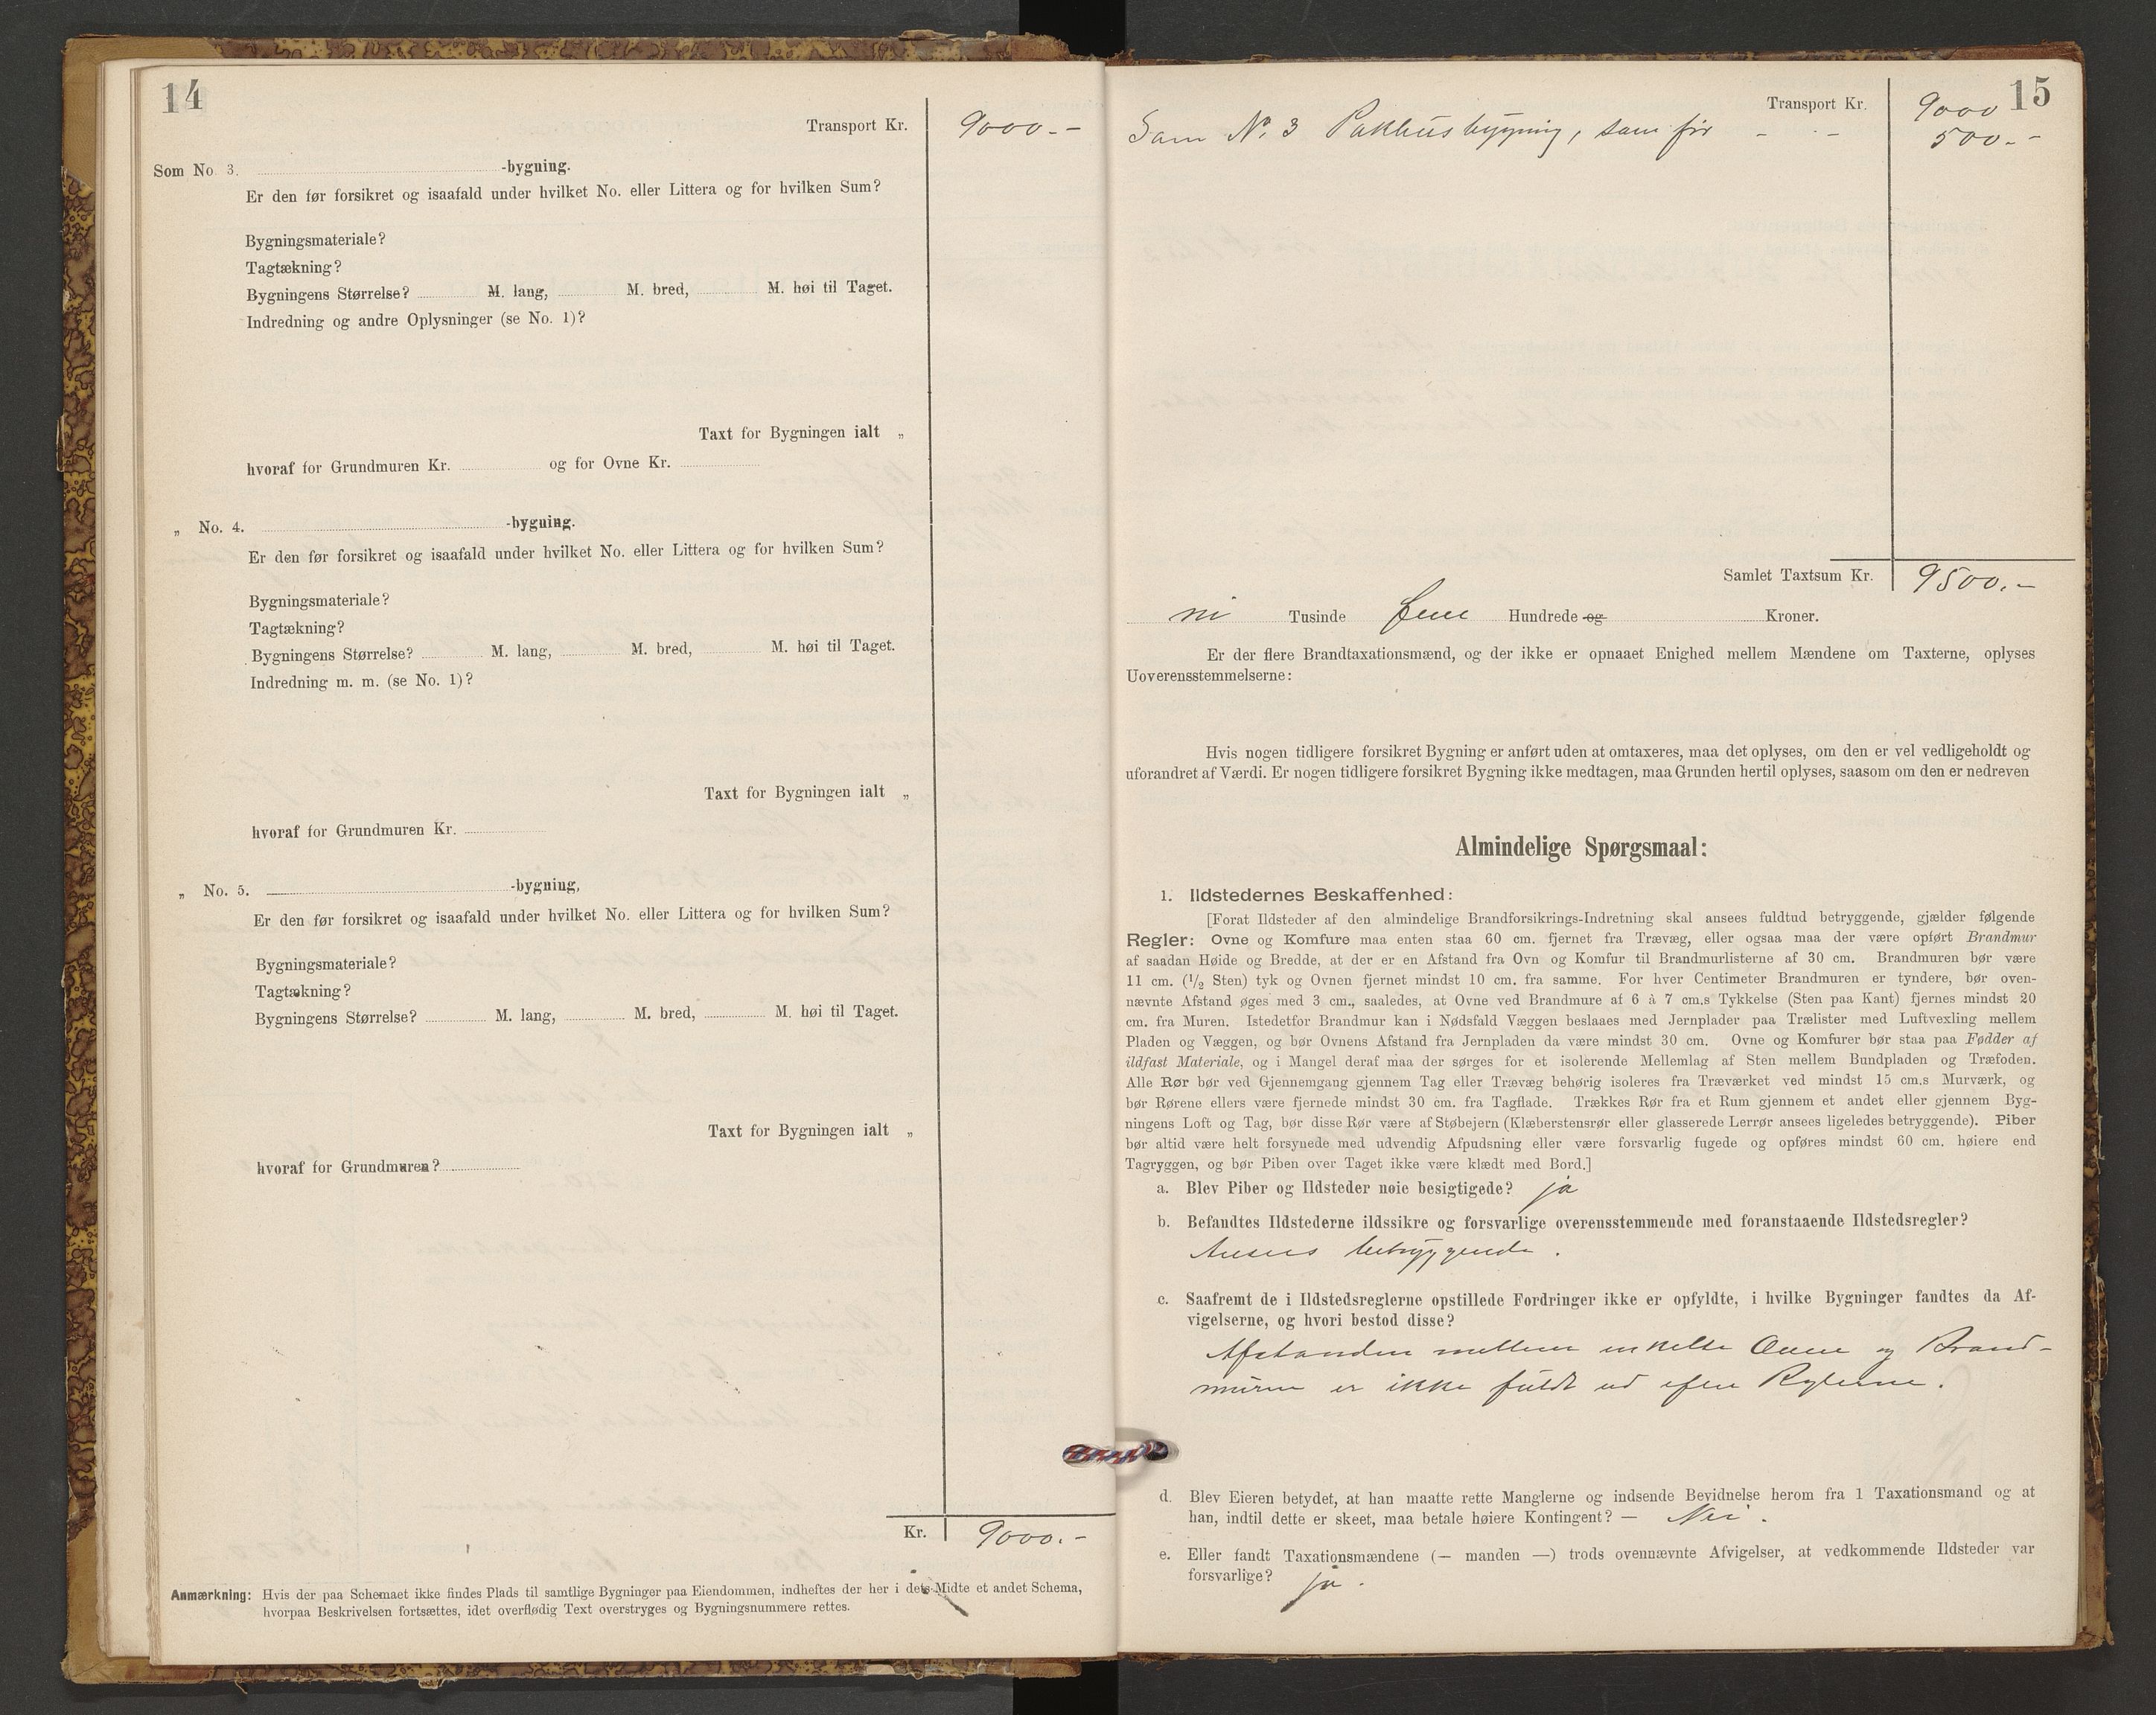 14
Transport Kr. 9000.-
Som No 3. -bygning.
Er den før forsikret og isaafald under hvilket No. eller Littera og for hvilken Sum?
Bygningsmateriale?
Tagtækning?
Bygningens Størrelse? M. lang, M. bred, M. høi til Taget.
Indredning og andre Oplysninger (se No. 1)?
Taxt for Bygningen ialt „
hvoraf for Grundmuren Kr. og for Ovne Kr.
„ No. 4. -bygning.
Er den før forsikret og isaafald under hvilket No. eller Littera og for hvilken Sum?
Bygningsmateriale?
Tagtækning?
Bygningens Størrelse? M. lang, M. bred, M. høi til Taget.
Indredning m. m. (se No. 1)?
Taxt for Bygningen ialt „
hvoraf for Grundmuren Kr.
„ No. 5. -bygning,
Er den før forsikret og isaafald under hvilket No. eller Littera og for hvilken Sum?
Bygningsmateriale?
Tagtækning?
Bygningens Størrelse? M. lang, M. bred, M. høi til Taget.
Taxt for Bygningen ialt „
hvoraf for Grundmuren?
Kr. 9000.-
Anmærkning: Hvis der paa Schemaet ikke findes Plads til samtlige Bygninger paa Eiendommen, indheftes der her i dets Midte et andet Schema,
hvorpaa Beskrivelsen fortsættes, idet overflødig Text overstryges og Bygningsnummere rettes.
15
Transport Kr. 9000
Som No. 3 Pakhusbygning, som før - - - 500.-
Samlet Taxtsum Kr. 9500.-
ni Tusinde fem Hundrede og Kroner.
Er der flere Brandtaxationsmænd, og der ikke er opnaaet Enighed mellem Mændene om Taxterne, oplyses
Uoverensstemmelserne:
Hvis nogen tidligere forsikret Bygning er anført uden at omtaxeres, maa det oplyses, om den er vel vedligeholdt og
uforandret af Værdi. Er nogen tidligere forsikret Bygning ikke medtagen, maa Grunden hertil oplyses, saasom om den er nedreven
Almindelige Spørgsmaal:
1. Ildstedernes Beskaffenhed:
[Forat Ildsteder af den almindelige Brandforsikrings-Indretning skal ansees fuldtud betryggende, gjælder følgende
Regler: Ovne og Komfure maa enten staa 60 cm. fjernet fra Trævæg, eller ogsaa maa der være opført Brandmur
af saadan Høide og Bredde, at der er en Afstand fra Ovn og Komfur til Brandmurlisterne af 30 cm. Brandmuren bør være
11 cm. (1/2 Sten) tyk og Ovnen fjernet mindst 10 cm. fra samme. For hver Centimeter Brandmuren er tyndere, bør oven-
nævnte Afstand øges med 3 cm., saaledes, at Ovne ved Brandmure af 6 à 7 cm.s Tykkelse (Sten paa Kant) fjernes mindst 20
cm. fra Muren. Istedetfor Brandmur kan i Nødsfald Væggen beslaaes med Jernplader paa Trælister med Luftvexling mellem
Pladen og Væggen, og bør Ovnens Afstand fra Jernpladen da være mindst 30 cm. Ovne og Komfurer bør staa paa Fødder af
ildfast Materiale, og i Mangel deraf maa der sørges for et isolerende Mellemlag af Sten mellem Bundpladen og Træfoden.
Alle Rør bør ved Gjennemgang gjennem Tag eller Trævæg behørig isoleres fra Træværket ved mindst 15 cm.s Murværk, og
bør Rørene ellers være fjernede mindst 30 cm. fra Tagflade. Trækkes Rør fra et Rum gjennem et andet eller gjennem Byg-
ningens Loft og Tag, bør disse Rør være af Støbejern (Klæberstensrør eller glasserede Lerrør ansees ligeledes betryggende). Piber
bør altid være helt forsynede med udvendig Afpudsning eller være forsvarlig fugede og opføres mindst 60 cm. høiere end
Tagryggen, og bør Piben over Taget ikke være klædt med Bord.]
a. Blev Piber og Ildsteder nøie besigtigede? ja
b. Befandtes Ildstederne ildssikre og forsvarlige overensstemmende med foranstaaende Ildstedsregler?
Ansees betryggende.
c. Saafremt de i Ildstedsreglerne opstillede Fordringer ikke er opfyldte, i hvilke Bygninger fandtes da Af-
vigelserne, og hvori bestod disse?
Afstanden mellem enkelte Ovne og Brand-
murene er ikke fuldt ud efter Reglerne.
d. Blev Eieren betydet, at han maatte rette Manglerne og indsende Bevidnelse herom fra 1 Taxationsmand og at
han, indtil dette er skeet, maa betale høiere Kontingent? — Nei.
e. Eller fandt Taxationsmændene (— manden —) trods ovennævnte Afvigelser, at vedkommende Ildsteder var
forsvarlige? ja.